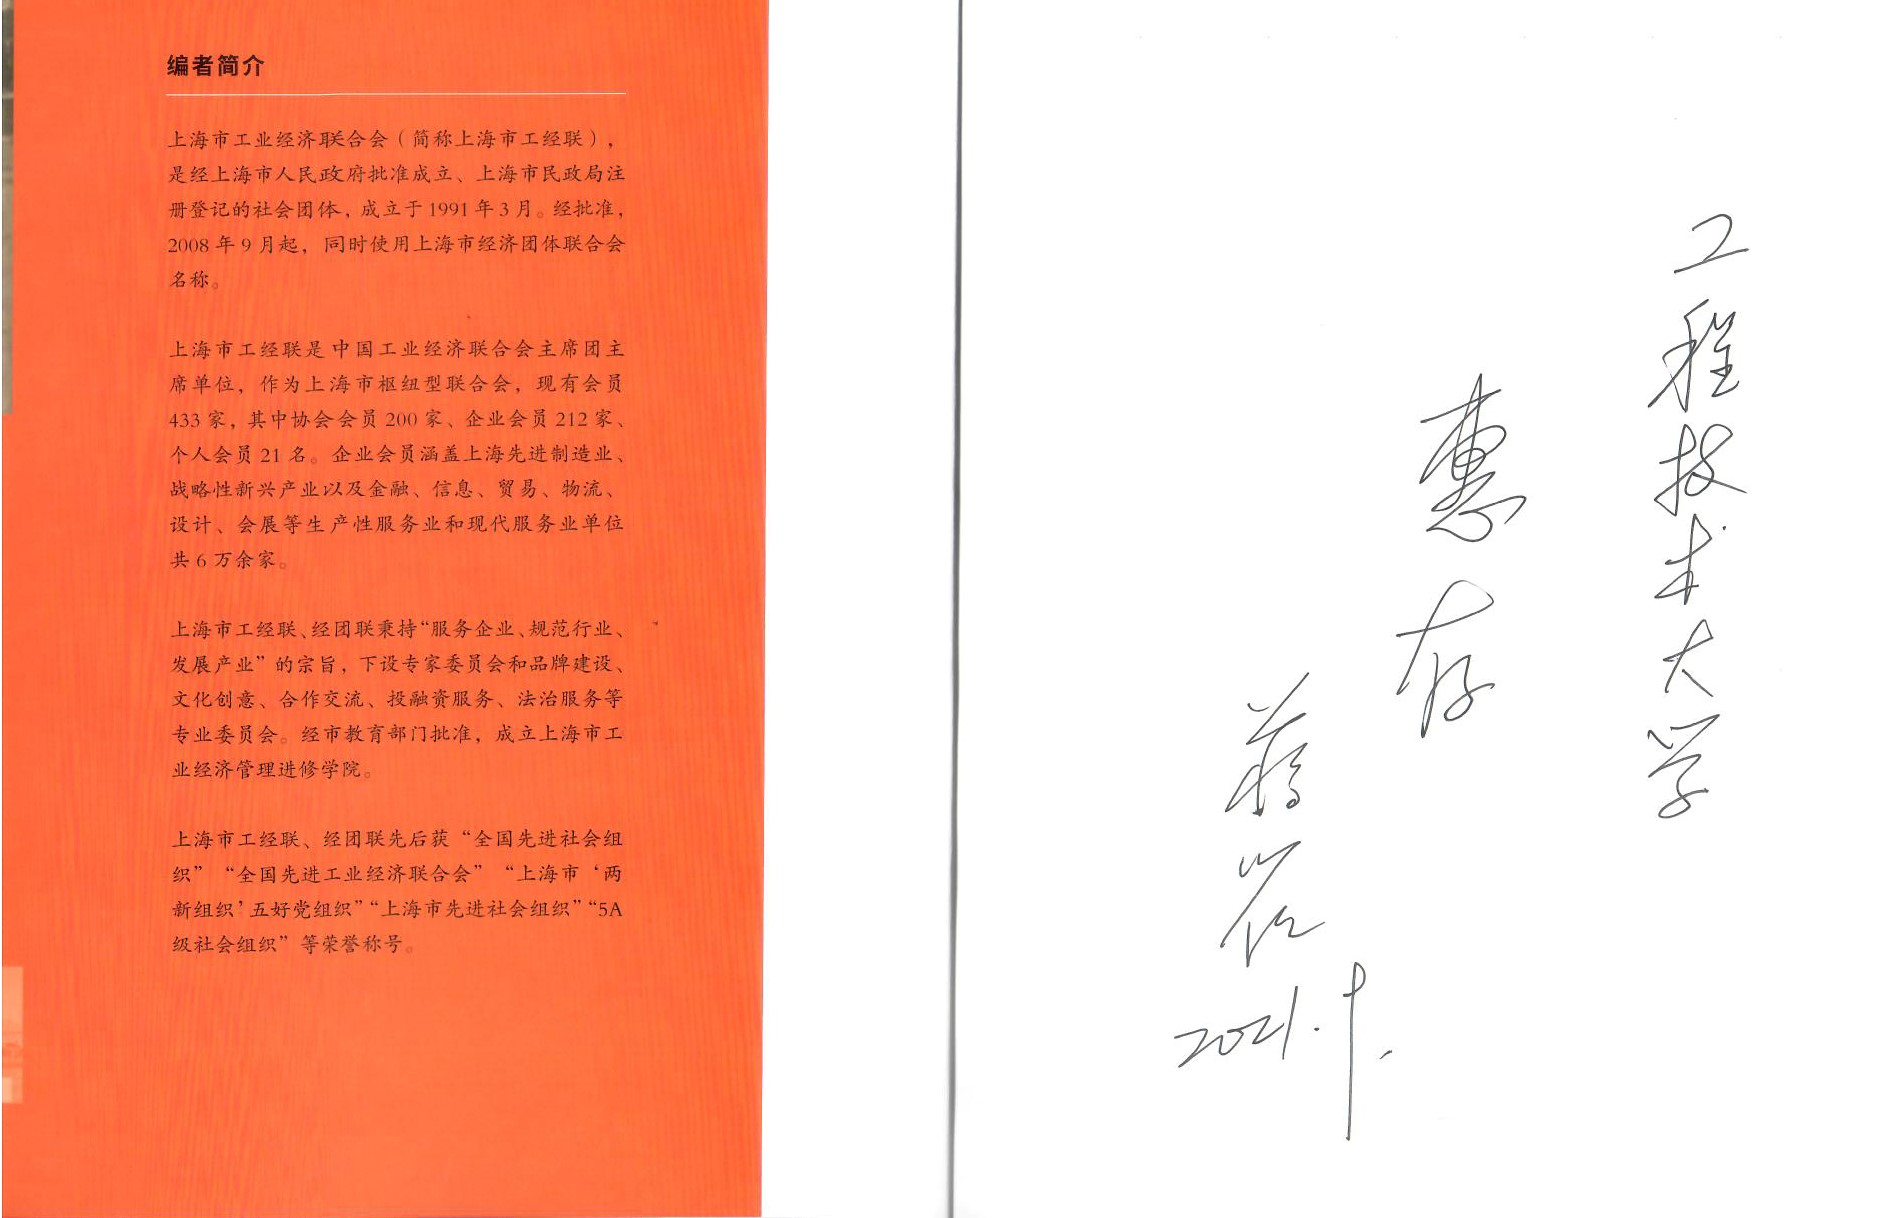 编者简介
上海市工业经济联合会（简称上海市工经联），
是经上海市人民政府批准成立、上海市民政局注
册登记的社会团体，成立于1991年3月。经批准，
2008年9月起，同时使用上海市经济团体联合会
名称。
上海市工经联是中国工业经济联合会主席团主
席单位，作为上海市枢纽型联合会，现有会员
433家，其中协会会员200家、企业会员212家、
个人会员21名。企业会员涵盖上海先进制造业、
战略性新兴产业以及金融、信息、贸易、物流、
设计、会展等生产性服务业和现代服务业单位
共6万余家。
上海市工经联、经团联秉持“服务企业、规范行业、
发展产业”的宗旨，下设专家委员会和品牌建设、
文化创意、合作交流、投融资服务、法治服务等
专业委员会。经市教育部门批准，成立上海市工
业经济管理进修学院。
上海市工经联、经团联先后获“全国先进社会组
织”“全国先进工业经济联合会”“上海市‘两
新组织’五好党组织”“上海市先进社会组织”“5A
级社会组织”等荣誉称号。
工程技术大学
惠存
蒋
2021.9.